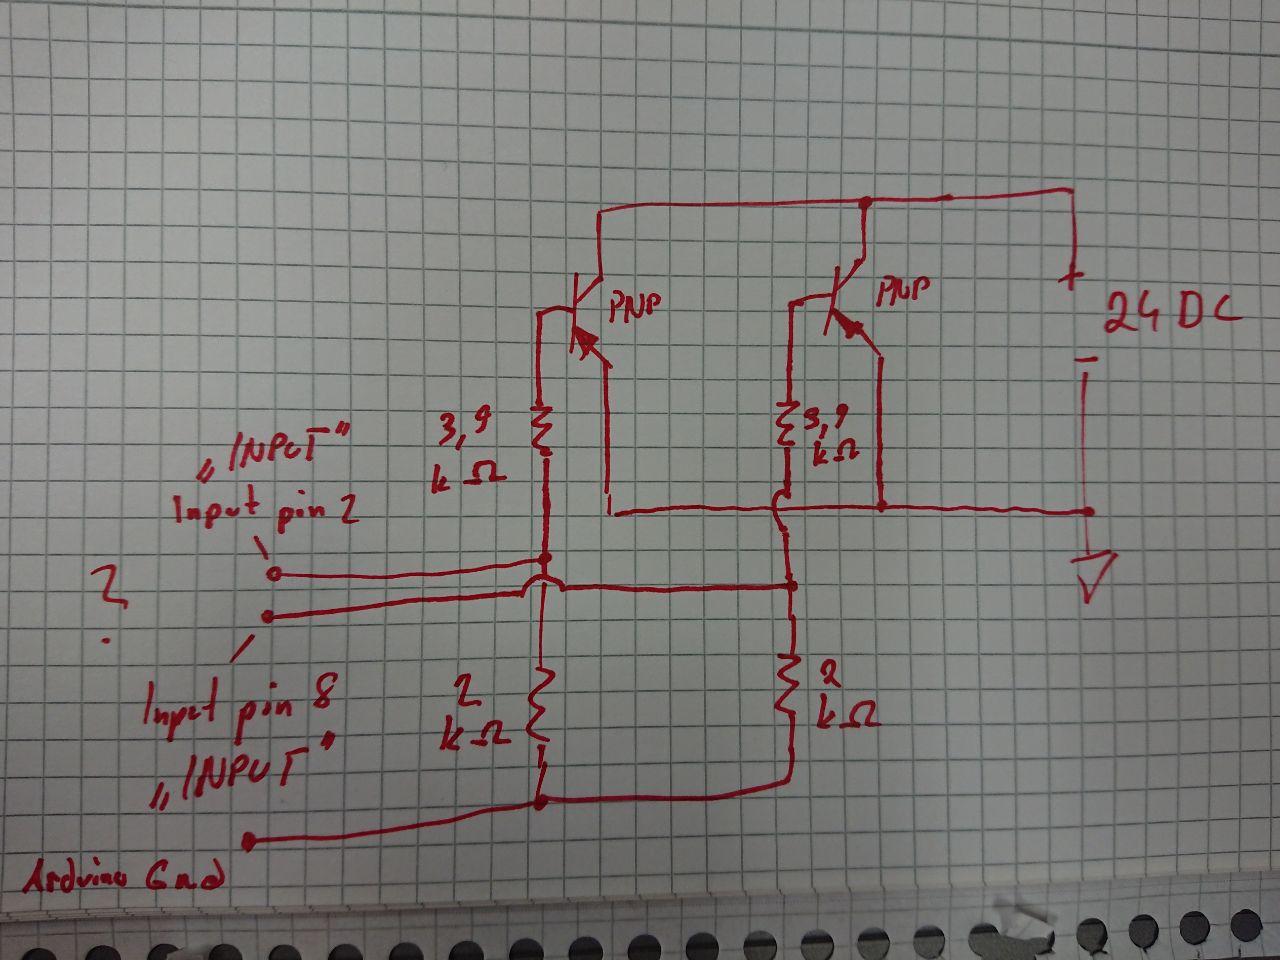 PNP
PNP
+
24 DC
-
3,9
kΩ
3,9
kΩ
„INPUT"
Input pin 2
?
Input pin 8
„INPUT"
2
kΩ
2
kΩ
Arduino Gnd